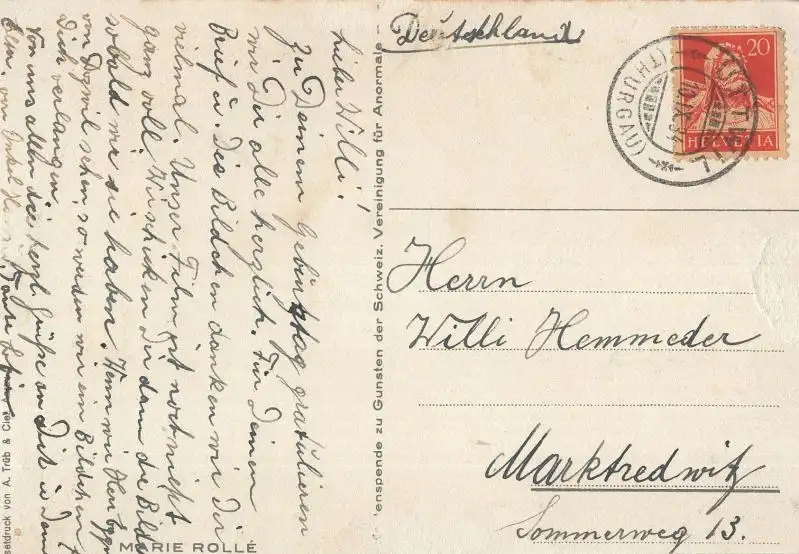 Lieber Willi!
Zu Deinem Gebutstag gratulieren
wir Dir alle herzlich. Für Deinen
Brief u. Die Bildchen danken wir Dir
vielmal. Unser Film ist noch nicht
ganz voll. Wir schicken Dir dann die Bilder
sobald wir sie haben. Wenn wir
von Dozwil sehen, so werden wir ein Bildchen für
Dich verlangen.
Von uns allen die herzl. Grüße an Dich u. Deine
Eltern, von Onkel Hans, Tante
MARIE ROLLÉ
setdruck von A. Trüb & Cie.
enspende zu Gunsten der Schweiz. Vereinigung für Anormale -
Deutschland
UTTWIL
(THURGAU)
20
HELVETIA
Herrn
Willi Hemmeder
Marktredwitz
Sommerweg 13.